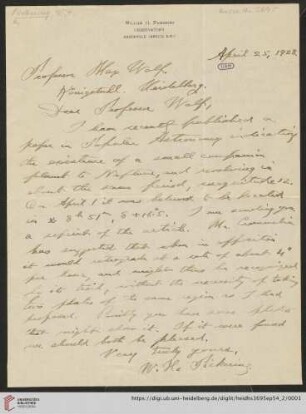 William H. Pickering
Observatory
April 25, 1928.
Professor Max Wolf,
Königstuhl, Heidelberg.
Dear Professor Wolf,
I have recently published a
paper in Popular Astronomy indicating
the existence of a small companion
planet to Neptune, and revolving in
about the same period,
On April 1 it was believed to be located
in
a reprint of the article. Mr.
has suggested that when in opposition
it would retrograde at a rate of about 4"
per hour, and might thus be recognized
by its trail, without the necessity of taking
two plates of the same region as I had
proposed. Possibly you have some plate
that might show it. If it were found
we should both be pleased.
Very truly yours,
W. H. Pickering.
https://digi.ub.uni-heidelberg.de/diglit/heidhs3695ep14_2/0001